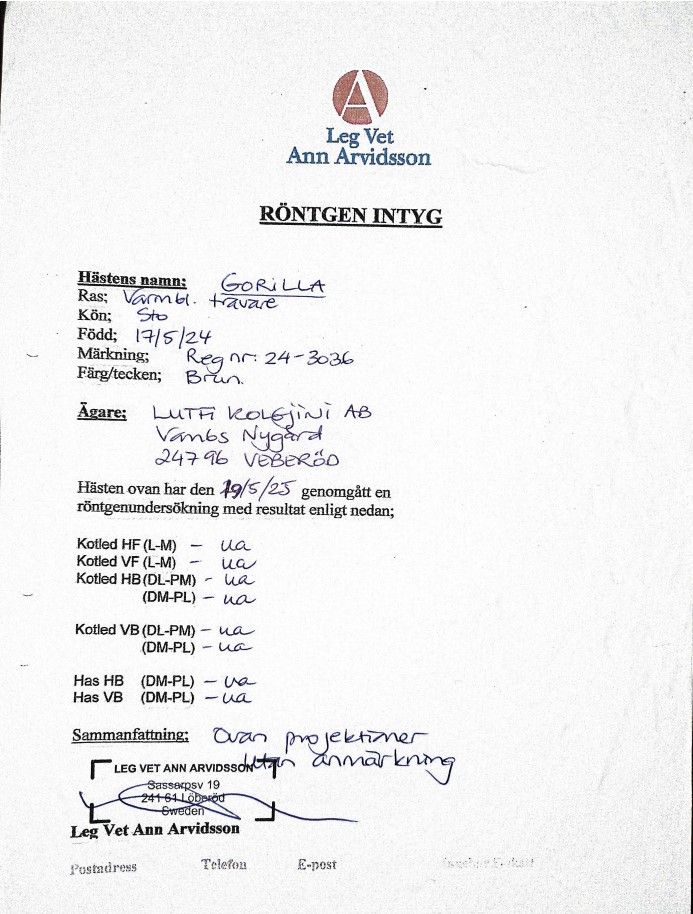 A
Leg Vet
Ann Arvidsson
RÖNTGEN INTYG
Hästens namn; GORILLA
Ras; Varmbl. travare
Kön; Sto
Född; 17/5/24
Märkning; Reg nr: 24-3036
Färg/tecken; Brun.
Ägare; LUTFI KOLGJINI AB
Vambs Nygård
247 96 VEBERÖD
Hästen ovan har den 19/5/25 genomgått en
röntgenundersökning med resultat enligt nedan;
Kotled HF (L-M) – ua
Kotled VF (L-M) – ua
Kotled HB (DL-PM) - ua
(DM-PL) – ua
Kotled VB (DL-PM) – ua
(DM-PL) – ua
Has HB (DM-PL) – ua
Has VB (DM-PL) – ua
Sammanfattning; Ovan projektioner
utan anmärkning
LEG VET ANN ARVIDSSON
Sassarpsv 19
241 61 Löberöd
Sweden
Leg Vet Ann Arvidsson
Postadress Telefon E-post